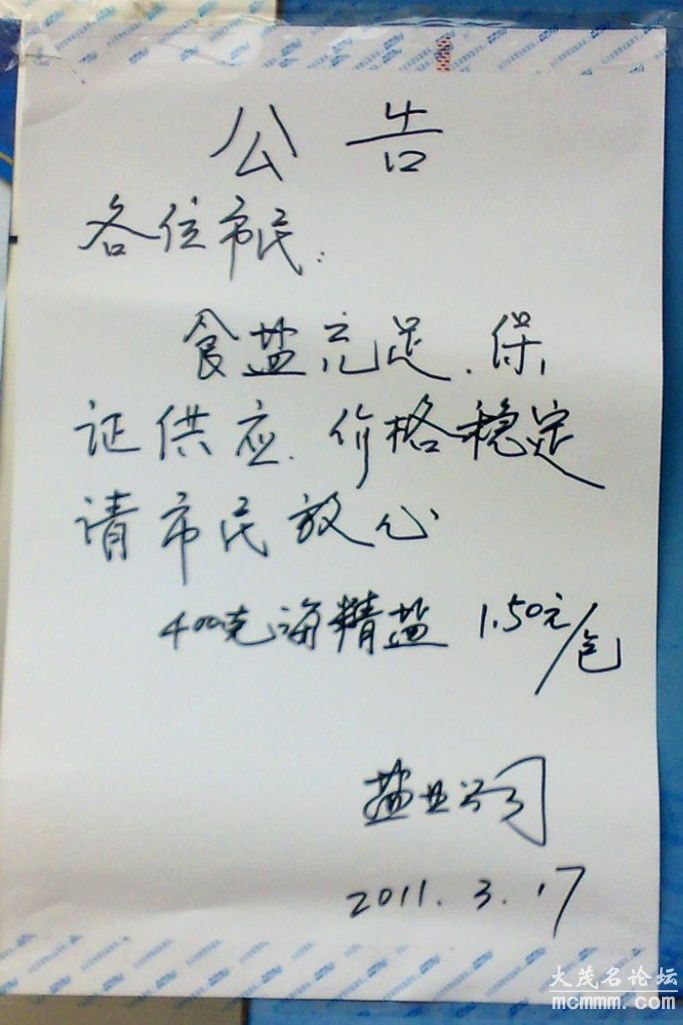 公告
各位市民:
食盐充足、保
证供应、价格稳定
请市民放心
400克海精盐 1.50元/包
盐业公司
2011.3.17
大茂名论坛
mcmmm.com